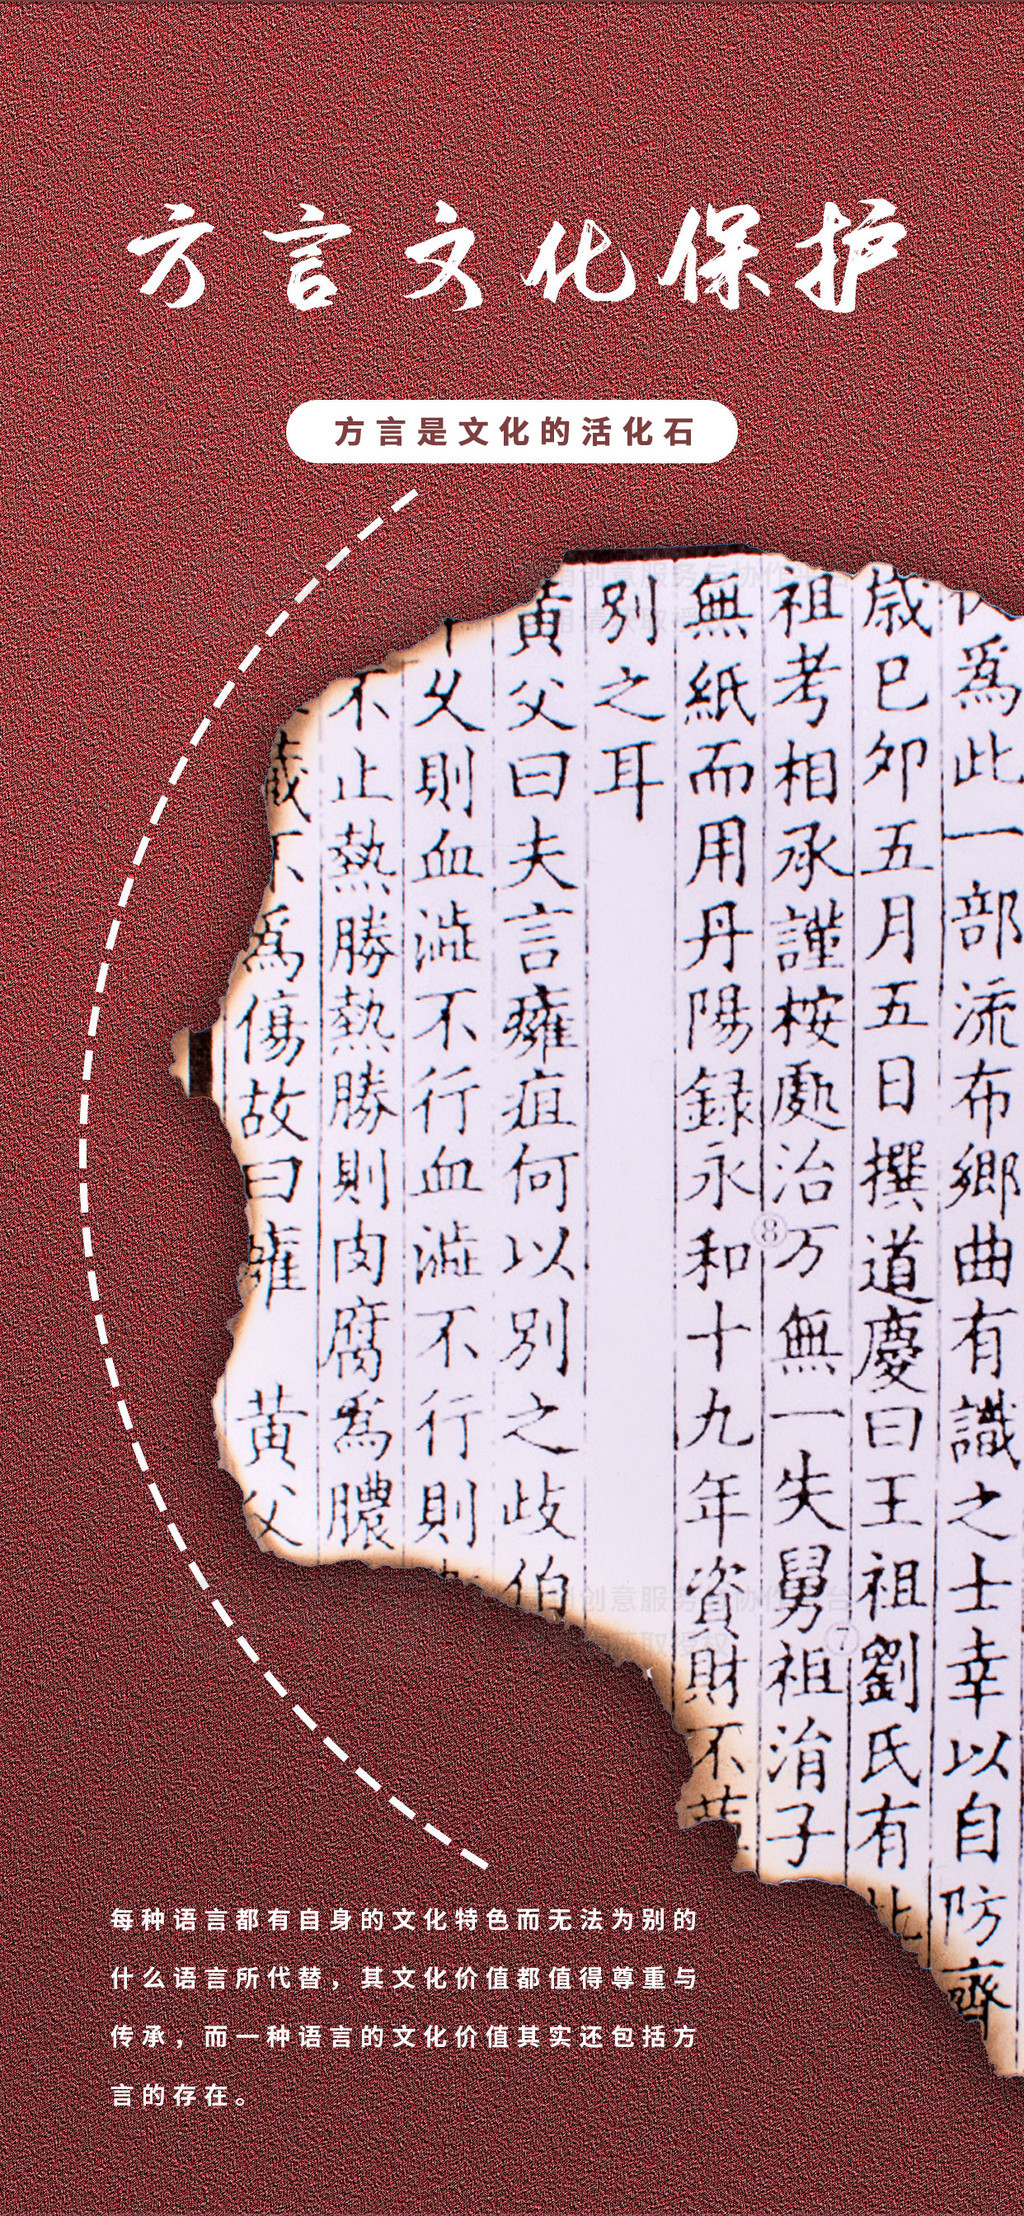 方言文化保护
方言是文化的活化石
爲此一部流布鄉曲有識之士幸以自防齊
歳巳夘五月五日撰道慶曰王祖劉氏有此
祖考相承謹桉處治万無一失舅祖涓子
無紙而用丹陽録永和十九年資財不薄
别之耳
黄父曰夫言癰疽何以别之歧伯
父則血澁不行血澁不行則
不止熱勝熱勝則肉腐爲膿
不爲傷故曰癰 黄父
每种语言都有自身的文化特色而无法为别的
什么语言所代替，其文化价值都值得尊重与
传承，而一种语言的文化价值其实还包括方
言的存在。